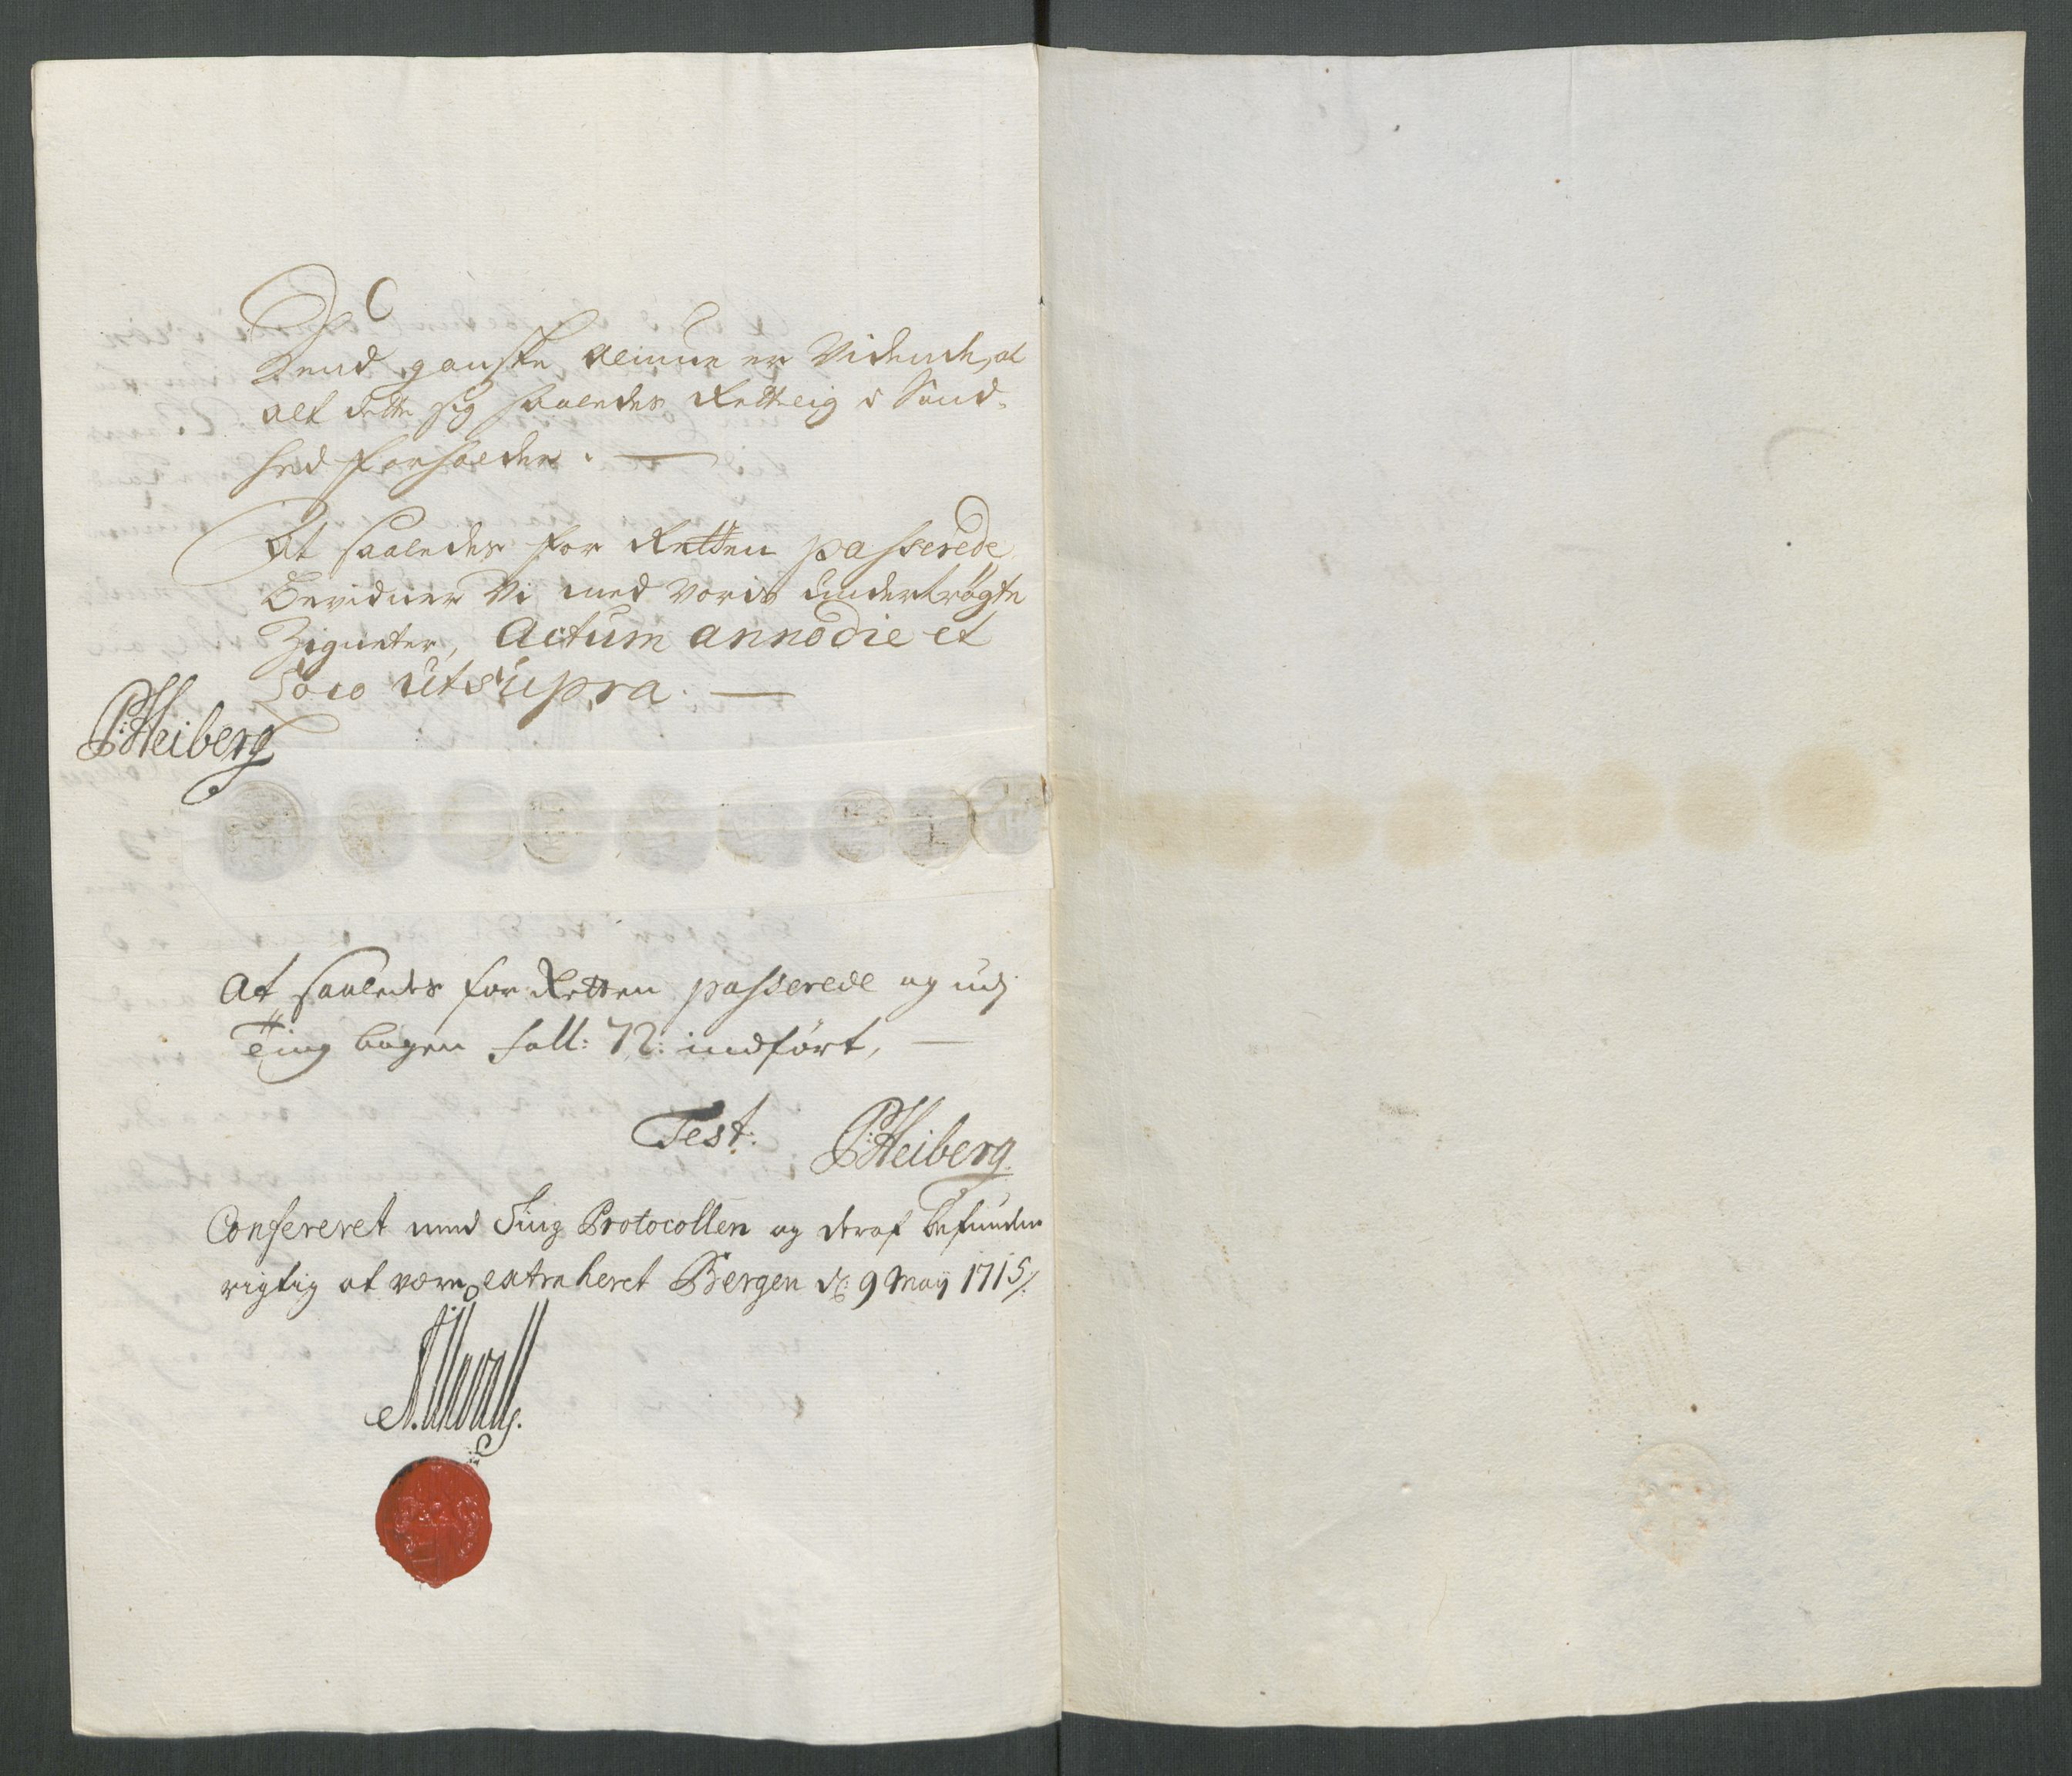 Dend ganske Almue er Vidende, at
alt dette sig saaledes Rettelig i Sand-
hed forholder.
At saaledes for Retten passerede
Bevidner Vi med Voris undertrögte
Zigneter, Actum anno die et
Loco utsupra.
P: Heiberg
At saaledes for Retten passerede og udj
Ting bogen foll: 72: indført,
Test:
P: Heiberg
Confereret med Ting Protocollen og deraf befunden
rigtig at være extraheret Bergen d: 9 Maÿ 1715/